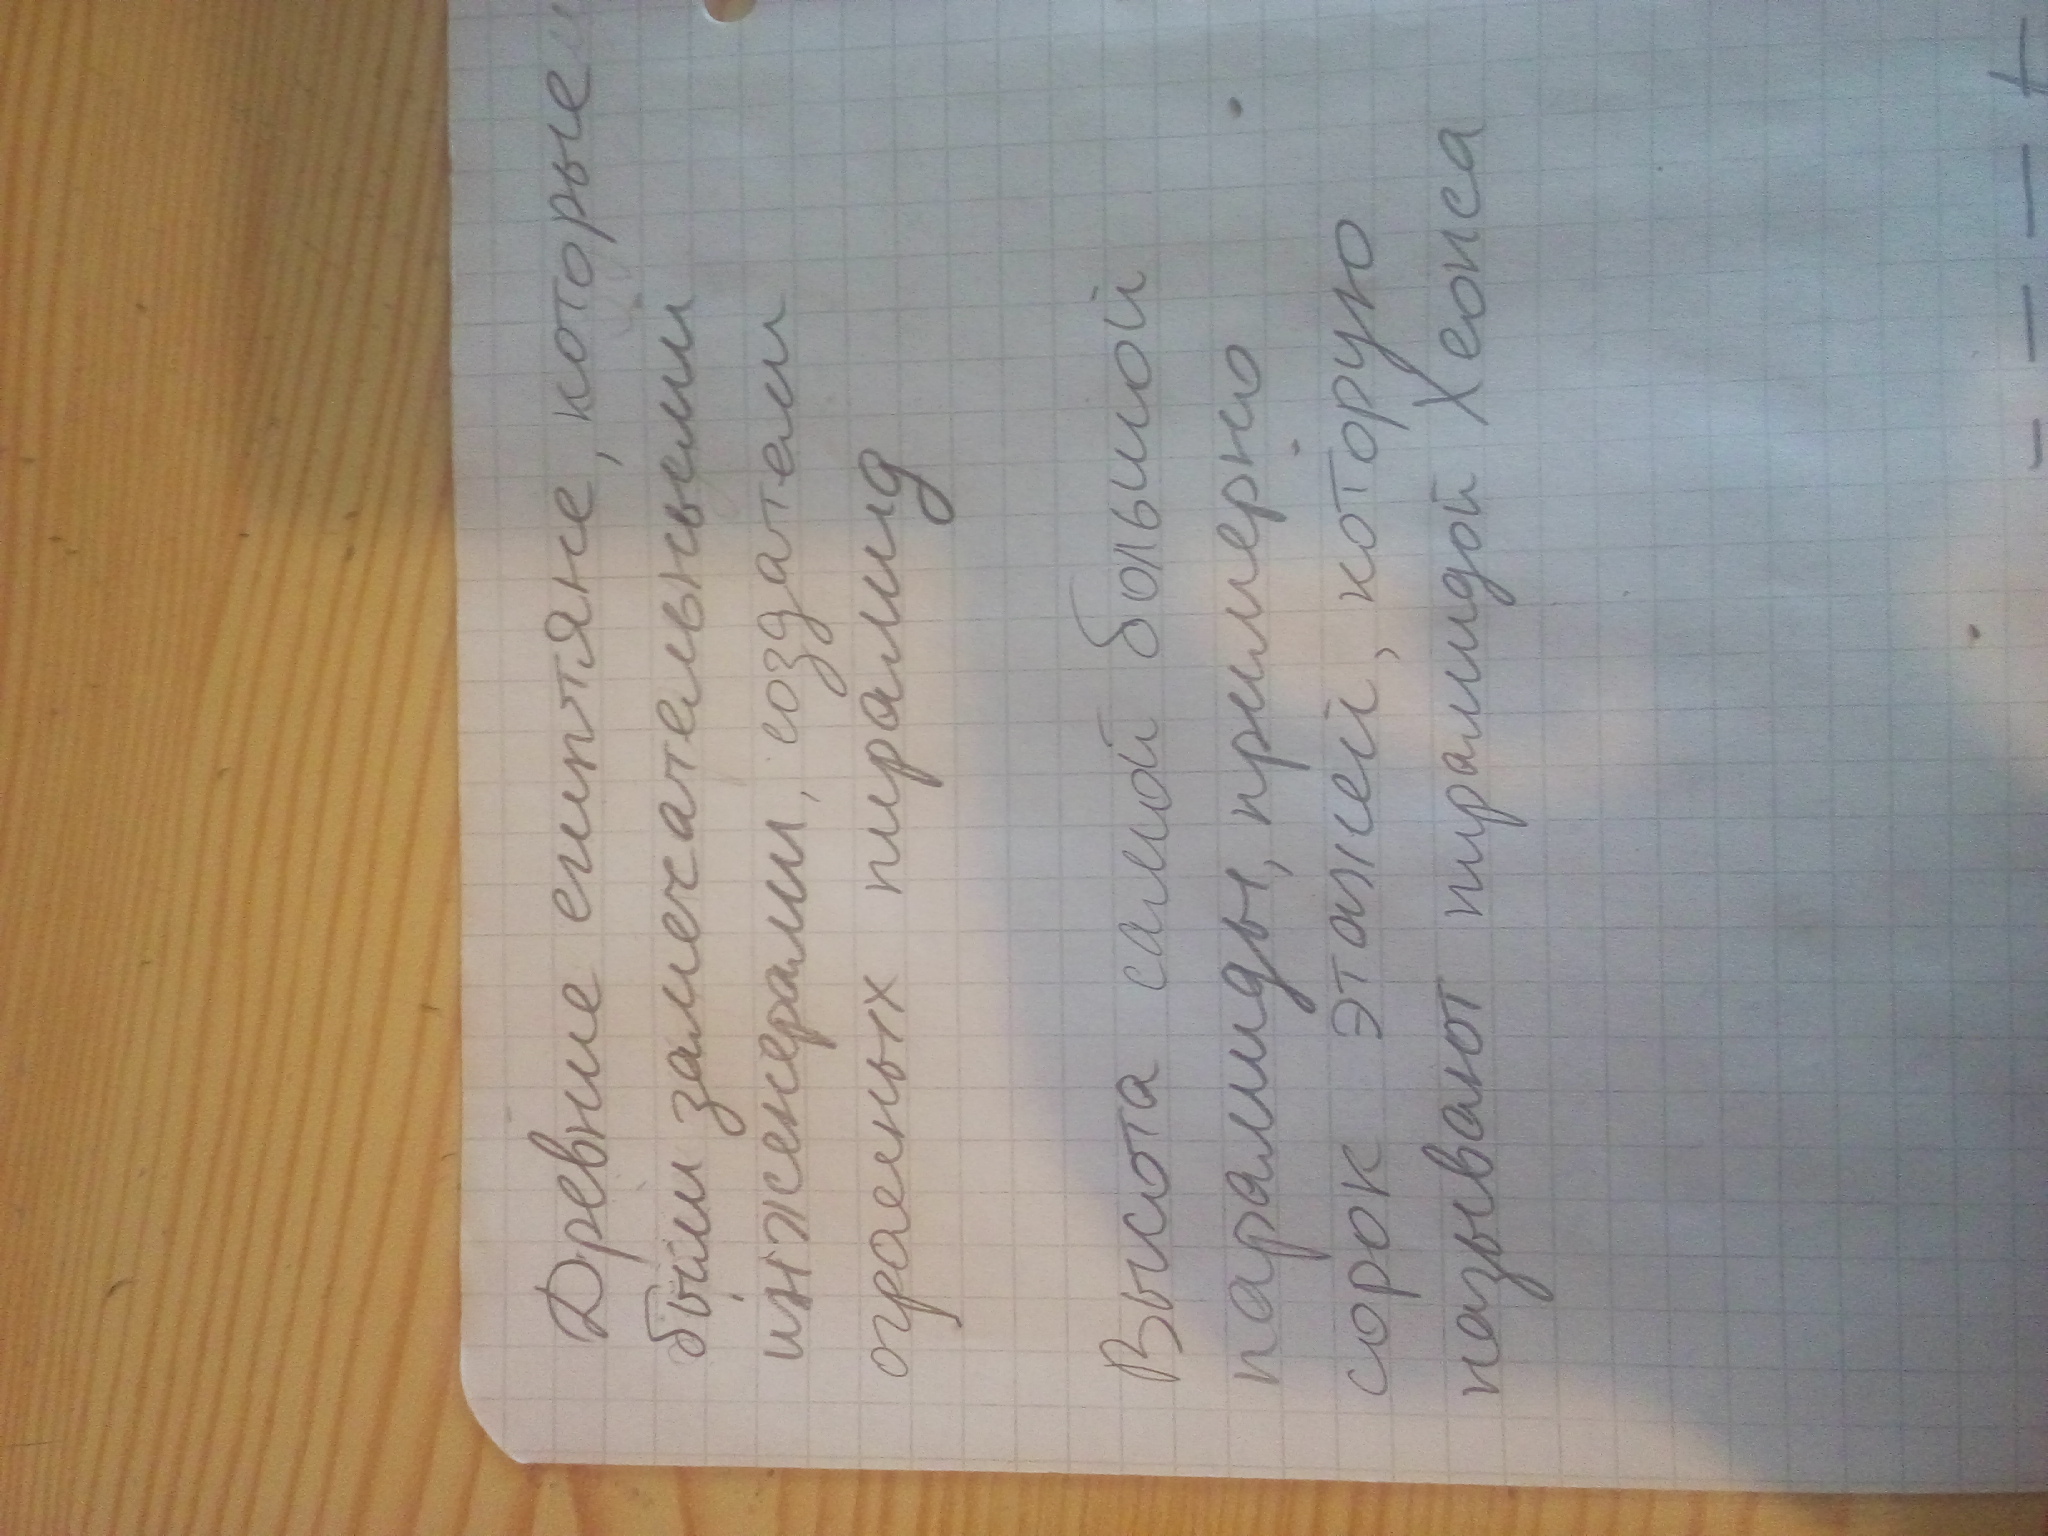 Древние египтяне, которые
были замечательными
инженерами, создатели
ограеных пирамид
Высота самой большой
парамиды, примерно
сорок этажей, которую
называют пирамидой Хеопса